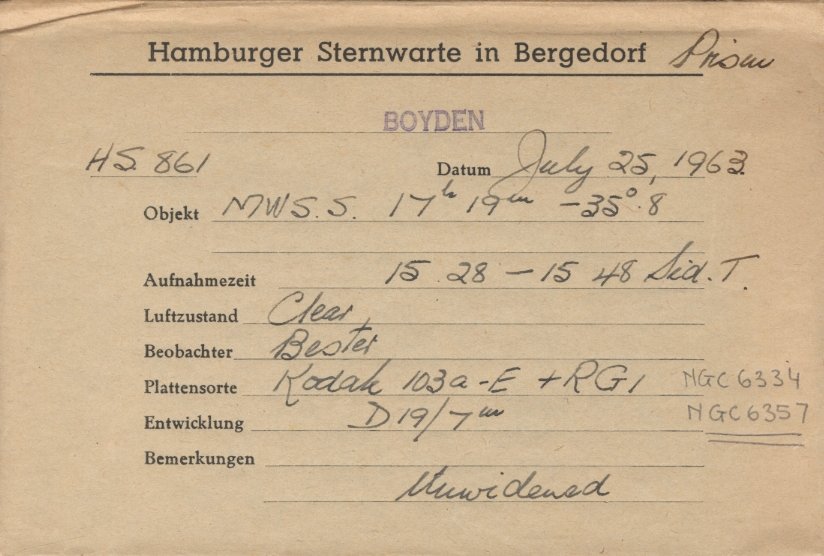 Hamburger Sternwarte in Bergedorf Prism
BOYDEN
HS. 861 Datum July 25, 1963.
Objekt MWS.S. 17h 19m -35°.8
Aufnahmezeit 15 28 - 15 48 Sid. T.
Luftzustand Clear
Beobachter Bester
Plattensorte Kodak 103a-E + RG1 NGC 6334
Entwicklung D19/7m NGC 6357
Bemerkungen
Unwidened